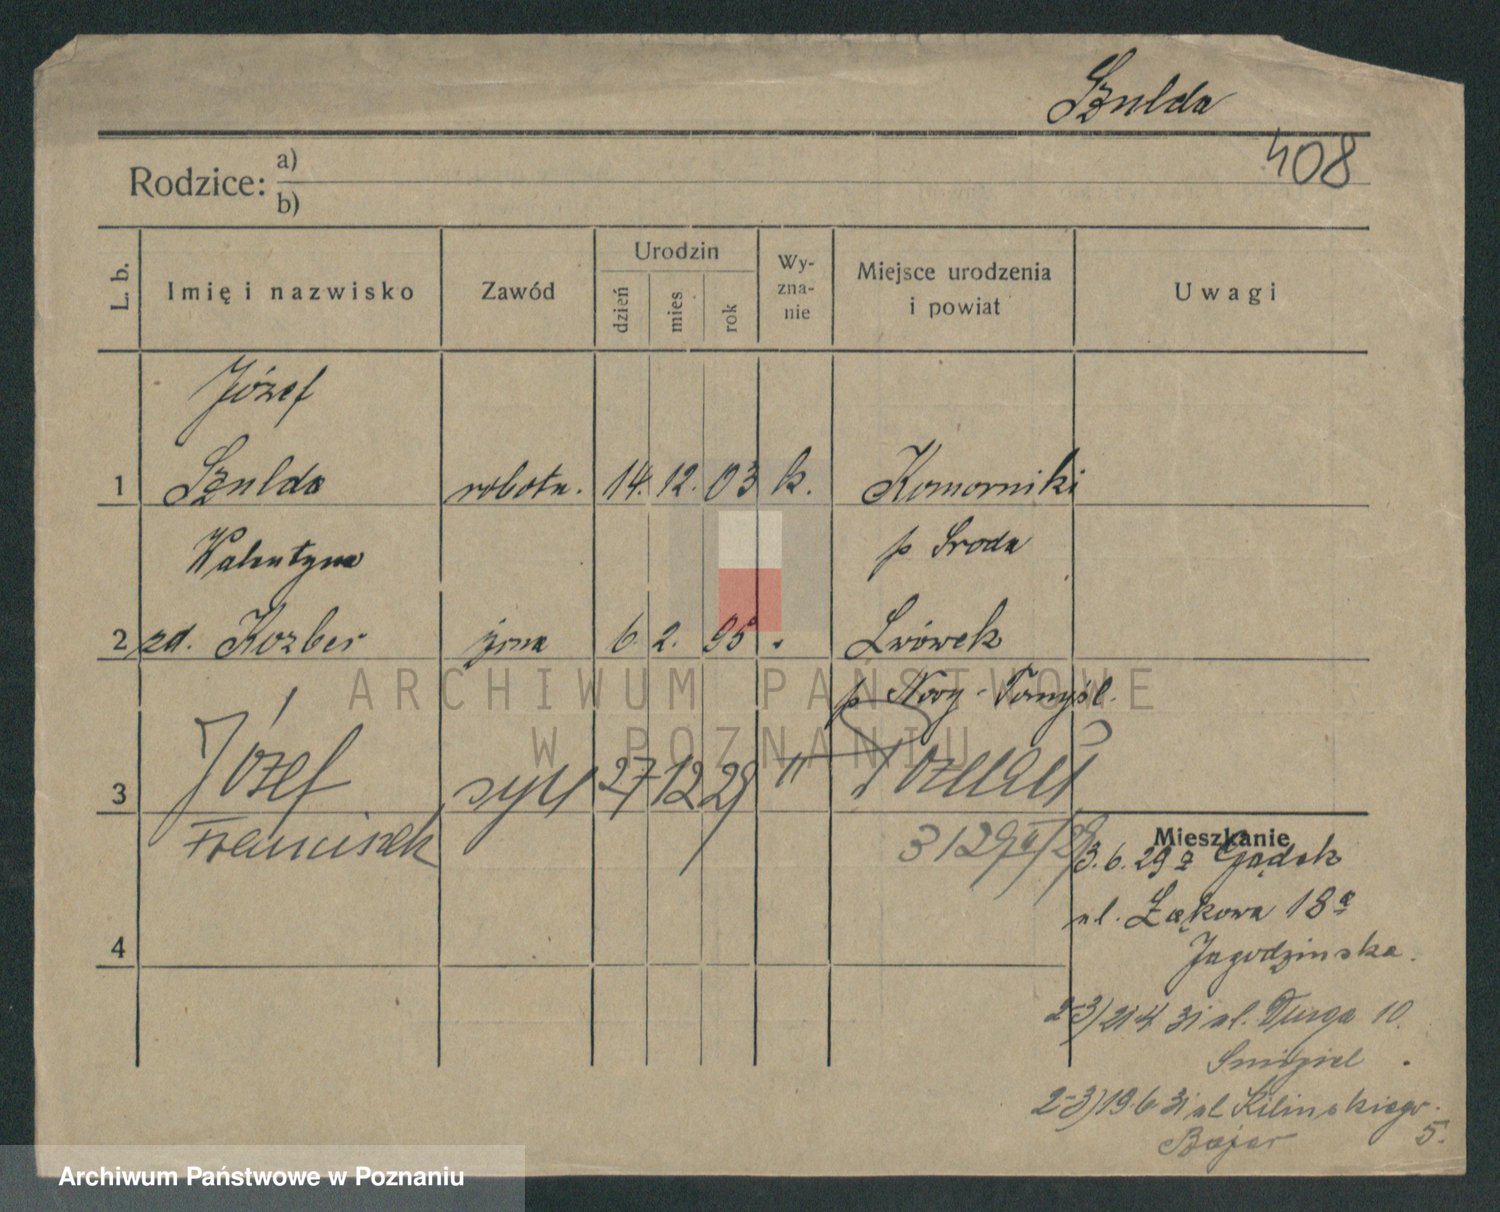 Szulda
408
Rodzice: a)
b)
L. b.
Imię i nazwisko
Zawód
Urodzin
dzień
mies
rok
Wy-
zna-
nie
Miejsce urodzenia
i powiat
Uwagi
Józef
1 Szulda robotn. 14. 12. 03 k. Komorniki
Walentyna p Sroda
2 zd. Kozber żona 6. 2. 95 " Lwówek
p Nowy-Tomyśl.
3 Józef syn 27 12 29 " Poznań
Franciszek
Mieszkanie
3.6.29 z Gądek
ul. Łąkowa 18a
Jagodzinska.
4
2-3) 21 4 31 ul. Długa 10.
Śmigiel
2-3) 19.6 31 ul Kilinskiego 5.
Bajer
ARCHIWUM PAŃSTWOWE
W POZNANIU
Archiwum Państwowe w Poznaniu